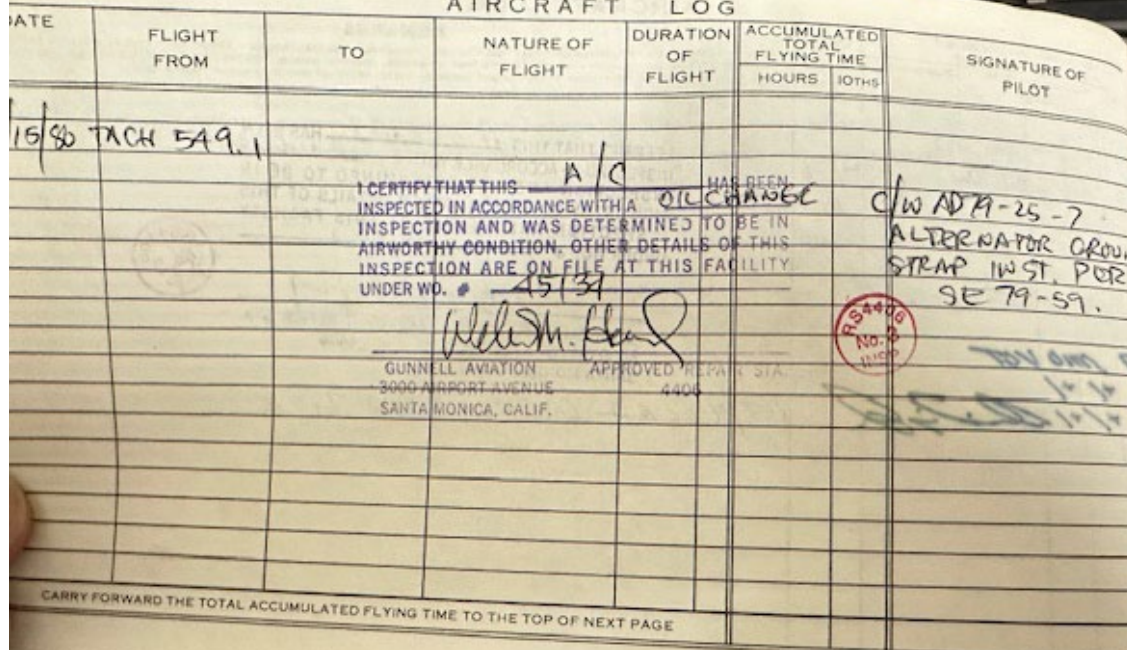 AIRCRAFT LOG
DATE
FLIGHT FROM
TO
NATURE OF FLIGHT
DURATION OF FLIGHT
ACCUMULATED TOTAL FLYING TIME
HOURS 10THS
SIGNATURE OF PILOT
/15/80 TACH 549.1
I CERTIFY THAT THIS A/C HAS BEEN
INSPECTED IN ACCORDANCE WITH A OIL CHANGE
INSPECTION AND WAS DETERMINED TO BE IN
AIRWORTHY CONDITION. OTHER DETAILS OF THIS
INSPECTION ARE ON FILE AT THIS FACILITY
UNDER WO. # 45134
GUNNELL AVIATION APPROVED REPAIR STA.
3000 AIRPORT AVENUE 4406
SANTA MONICA, CALIF.
C/W AD79-25-7
ALTERNATOR GROUN
STRAP INST. PER
SE 79-59.
RS4406
No. 3
INSP
CARRY FORWARD THE TOTAL ACCUMULATED FLYING TIME TO THE TOP OF NEXT PAGE